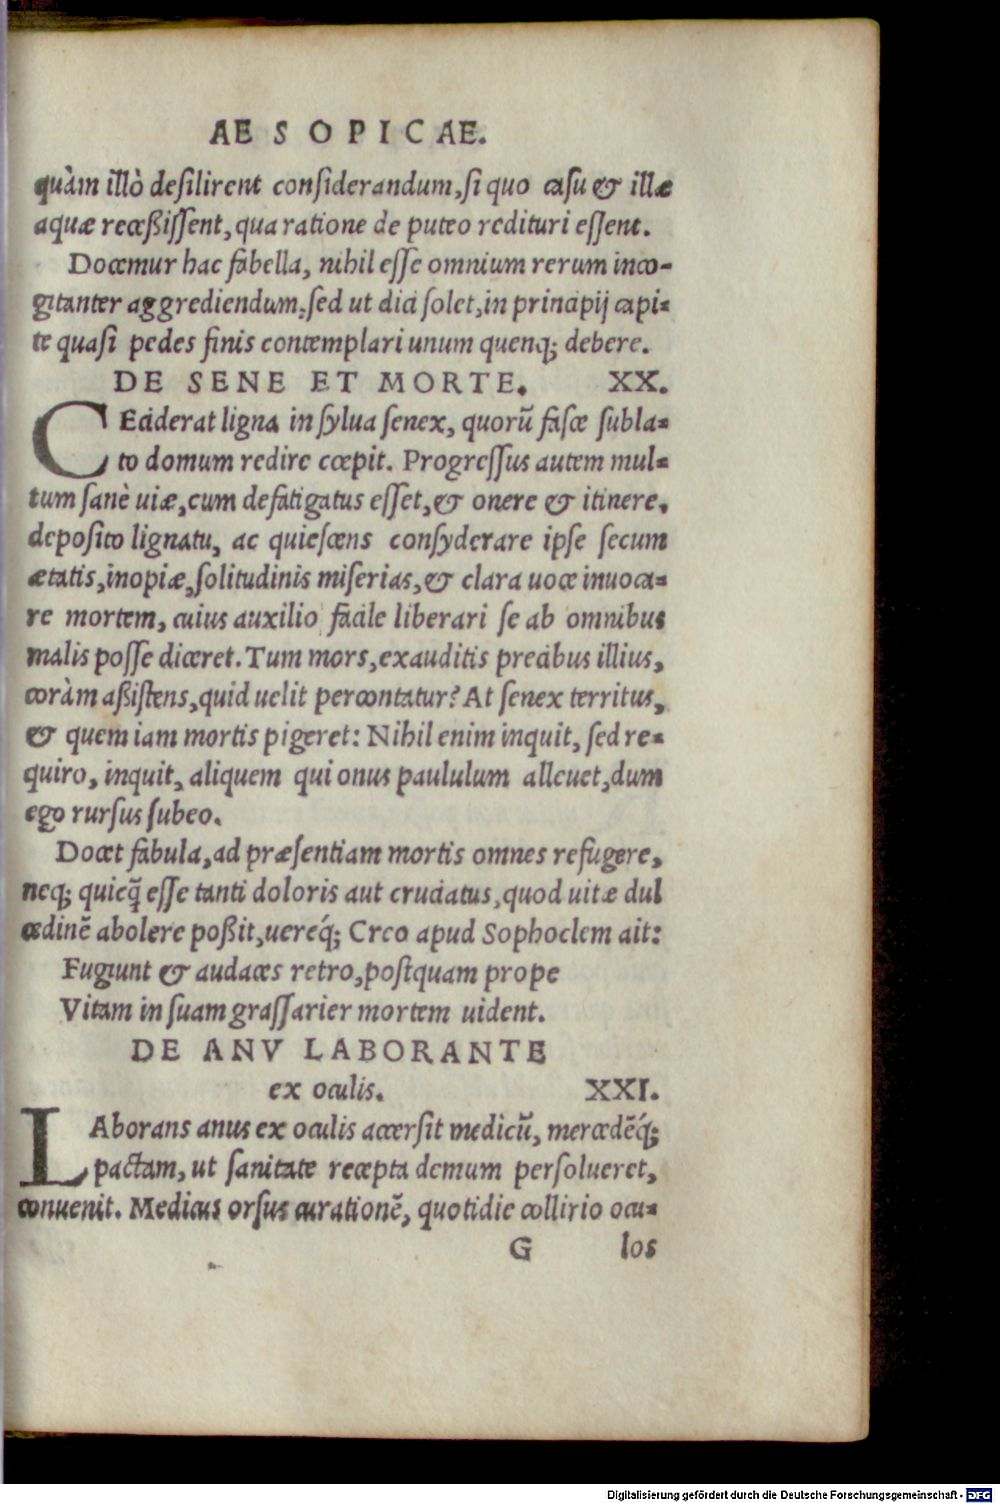 AESOPICAE.
quàm illò desilirent considerandum, si quo casu & illæ
aquæ receßissent, qua ratione de puteo redituri essent.
Docemur hac fabella, nihil esse omnium rerum inco-
gitanter aggrediendum, sed ut dici solet, in principij capi-
te quasi pedes finis contemplari unum quenq; debere.
DE SENE ET MORTE. XX.
CEciderat ligna in sylua senex, quorũ fasce subla-
to domum redire cœpit. Progressus autem mul-
tum sanè uiæ, cum defatigatus esset, & onere & itinere,
deposito lignatu, ac quiescens consyderare ipse secum
ætatis, inopiæ, solitudinis miserias, & clara uoce inuoca-
re mortem, cuius auxilio facile liberari se ab omnibus
malis posse diceret. Tum mors, exauditis precibus illius,
coràm aßistens, quid uelit percontatur? At senex territus,
& quem iam mortis pigeret: Nihil enim inquit, sed re-
quiro, inquit, aliquem qui onus paululum alleuet, dum
ego rursus subeo.
Docet fabula, ad præsentiam mortis omnes refugere,
neq; quicq̃ esse tanti doloris aut cruciatus, quod uitæ dul
cedinẽ abolere poßit, ueréq́; Creo apud Sophoclem ait:
Fugiunt & audaces retro, postquam prope
Vitam in suam grassarier mortem uident.
DE ANV LABORANTE
ex oculis. XXI.
LAborans anus ex oculis accersit medicũ, mercedẽq́;
pactam, ut sanitate recepta demum persolueret,
conuenit. Medicus orsus curationẽ, quotidie collirio ocu-
G los
Digitalisierung gefördert durch die Deutsche Forschungsgemeinschaft - DFG